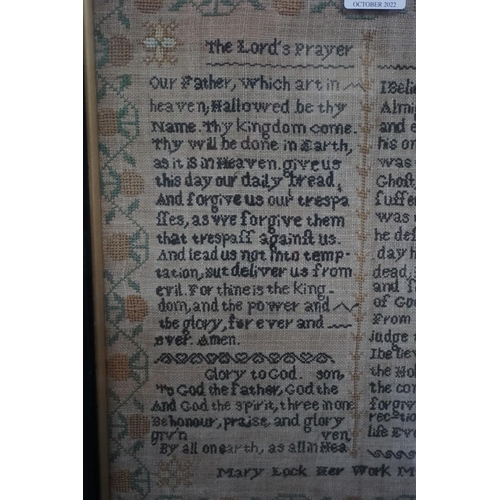 OCTOBER 2022
The Lord's Prayer
Our Father, which art in
heaven, Hallowed be thy
Name. Thy kingdom come.
Thy will be done in Earth,
as it is in Heaven. give us
this day our daily bread,
And forgive us our trespa
ſſes, as we forgive them
that treſpaſſ againſt us.
And lead us not into temp-
tation, But deliver us from
evil. For thine is the king-
dom, and the power and
the glory, for ever and
ever. Amen.
Glory to God. son,
To God the father, God the
And God the Spirit, three in one
Be honour, praise and glory
giv'n ven,
By all on earth, as all in Hea
I Beli
Almig
and e
his on
was
Ghoſt,
ſuffer
was
he deſ
day h
dead,
and ſ
of Go
From
judge t
I be liev
the Hol
the con
forgiv
rectio
life Eve
Mary Lock Her Work M